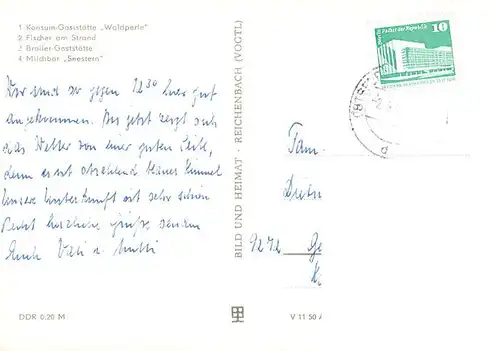 1 Konsum-Gaststätte „Waldperle"
2 Fischer am Strand
3 Broiler-Gaststätte
4 Milchbar „Seestern"
Wir sind so gegen 12³⁰ hier gut
angekommen. Bis jetzt zeigt sich
das Wetter von einer guten Seite,
denn es ist strahlend blauer Himmel
Unsere Unterkunft ist sehr schön
Recht herzliche Grüße senden
Euch Vati u. Mutti
DDR 0,20 M
BILD UND HEIMAT · REICHENBACH (VOGTL)
V 11 50
Berlin, Palast der Republik
10
Fam.
9272